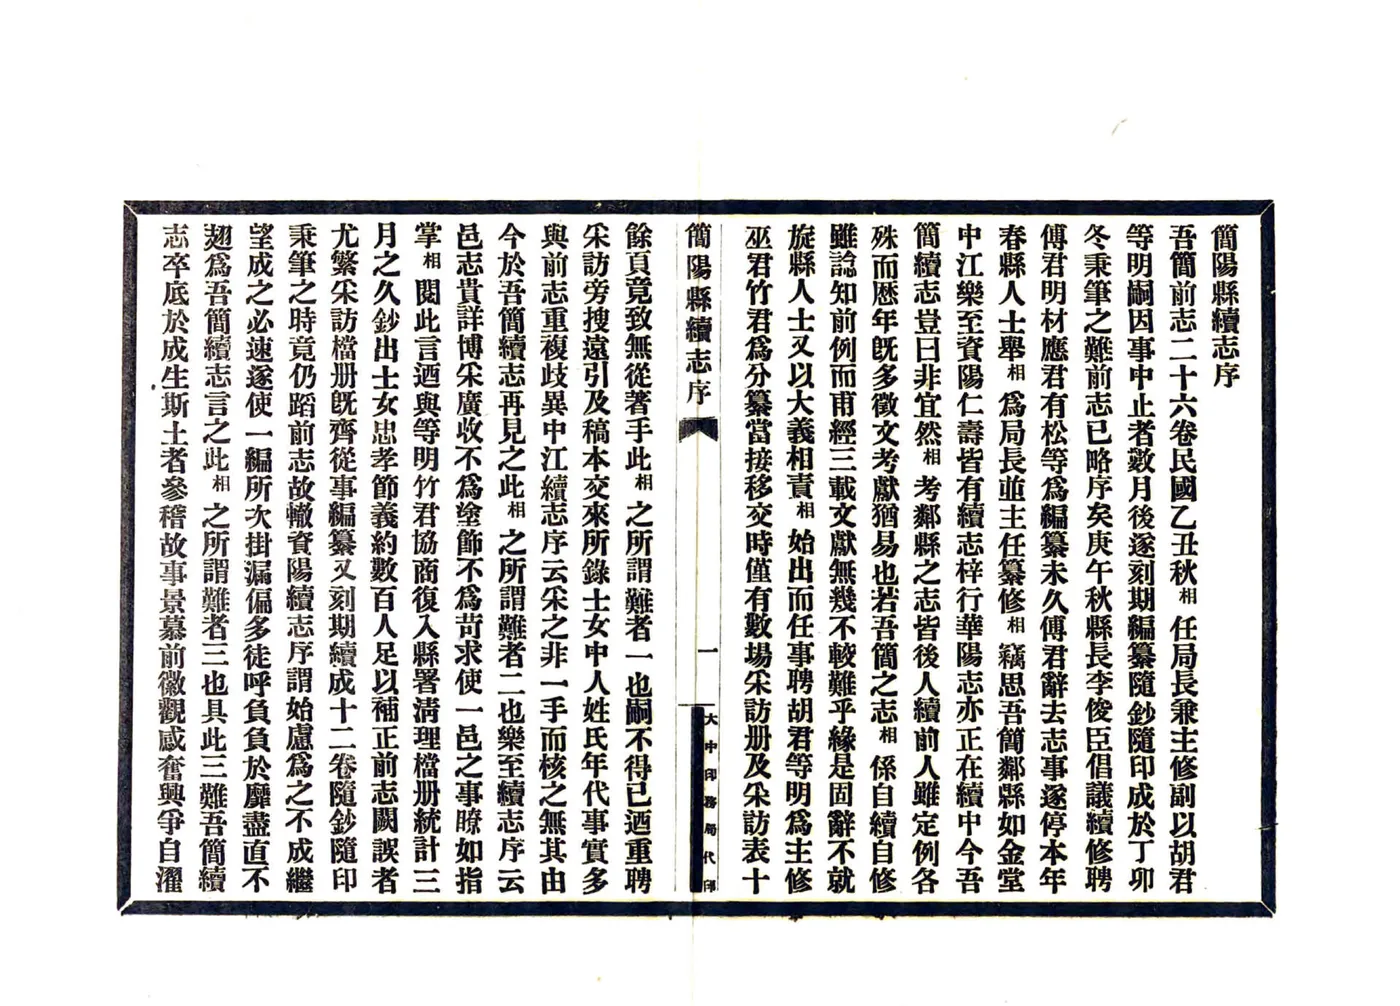 簡陽縣續志序
吾簡前志二十六卷民國乙丑秋相任局長兼主修副以胡君
等明嗣因事中止者數月後遂刻期編纂隨鈔隨印成於丁卯
冬秉筆之難前志已略序矣庚午秋縣長李俊臣倡議續修聘
傅君明材應君有松等爲編纂未久傅君辭去志事遂停本年
春縣人士舉相爲局長並主任纂修相竊思吾簡鄰縣如金堂
中江樂至資陽仁壽皆有續志梓行華陽志亦正在續中今吾
簡續志豈曰非宜然相考鄰縣之志皆後人續前人雖定例各
殊而歷年旣多徵文考獻猶易也若吾簡之志相係自續自修
雖諗知前例而甫經三載文獻無幾不較難乎緣是固辭不就
旋縣人士又以大義相責相始出而任事聘胡君等明爲主修
巫君竹君爲分纂當接移交時僅有數場采訪册及采訪表十
簡陽縣續志序
一
大中印務局代印
餘頁竟致無從著手此相之所謂難者一也嗣不得已迺重聘
采訪旁搜遠引及稿本交來所錄士女中人姓氏年代事實多
與前志重複歧異中江續志序云采之非一手而核之無其由
今於吾簡續志再見之此相之所謂難者二也樂至續志序云
邑志貴詳博采廣收不爲塗飾不爲苛求使一邑之事瞭如指
掌相閱此言迺與等明竹君協商復入縣署淸理檔册統計三
月之久鈔出士女忠孝節義約數百人足以補正前志闕誤者
尤繁采訪檔册旣齊從事編纂又刻期續成十二卷隨鈔隨印
秉筆之時竟仍蹈前志故轍資陽續志序謂始慮爲之不成繼
望成之必速遂使一編所次掛漏偏多徒呼負負於靡盡直不
趐爲吾簡續志言之此相之所謂難者三也具此三難吾簡續
志卒底於成生斯土者參稽故事景慕前徽觀感奮興爭自濯